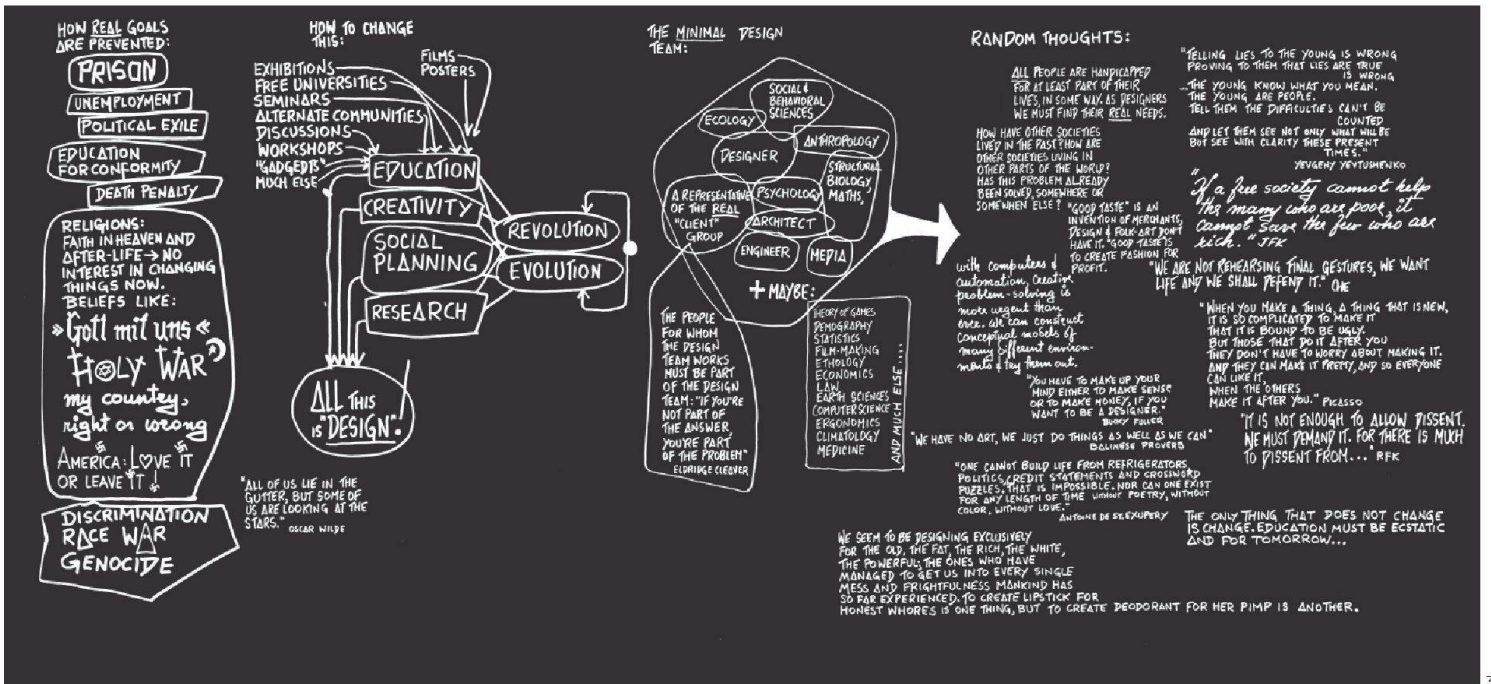 HOW REAL GOALS
ARE PREVENTED:
PRISON
UNEMPLOYMENT
POLITICAL EXILE
EDUCATION
FOR CONFORMITY
DEATH PENALTY
RELIGIONS:
FAITH IN HEAVEN AND
AFTER-LIFE → NO
INTEREST IN CHANGING
THINGS NOW.
BELIEFS LIKE:
» Gott mit uns «
HOLY WAR
my country,
right or wrong
AMERICA: LOVE IT
OR LEAVE IT!
DISCRIMINATION
RACE WAR
GENOCIDE
HOW TO CHANGE
THIS:
FILMS
POSTERS
EXHIBITIONS
FREE UNIVERSITIES
SEMINARS
ALTERNATE COMMUNITIES
DISCUSSIONS
WORKSHOPS
"GADGEDTS"
MUCH ELSE
EDUCATION
CREATIVITY
SOCIAL
PLANNING
RESEARCH
REVOLUTION
EVOLUTION
ALL THIS
IS "DESIGN"!
"ALL OF US LIE IN THE
GUTTER, BUT SOME OF
US ARE LOOKING AT THE
STARS."
OSCAR WILDE
THE MINIMAL DESIGN
TEAM:
SOCIAL &
BEHAVIORAL
SCIENCES
ECOLOGY
ANTHROPOLOGY
DESIGNER
STRUCTURAL
BIOLOGY,
MATHS,
A REPRESENTATIVE
OF THE REAL
"CLIENT"
GROUP
PSYCHOLOGY
ARCHITECT
ENGINEER
MEDIA
+ MAYBE:
THE PEOPLE
FOR WHOM
THE DESIGN
TEAM WORKS
MUST BE PART
OF THE DESIGN
TEAM: "IF YOU'RE
NOT PART OF
THE ANSWER,
YOU'RE PART
OF THE PROBLEM"
ELDRIDGE CLEAVER
THEORY OF GAMES
DEMOGRAPHY
STATISTICS
FILM-MAKING
ETHOLOGY
ECONOMICS
LAW
EARTH SCIENCES
COMPUTER SCIENCE
ERGONOMICS
CLIMATOLOGY
MEDICINE
AND MUCH ELSE....
RANDOM THOUGHTS:
ALL PEOPLE ARE HANDICAPPED
FOR AT LEAST PART OF THEIR
LIVES, IN SOME WAY. AS DESIGNERS
WE MUST FIND THEIR REAL NEEDS.
HOW HAVE OTHER SOCIETIES
LIVED IN THE PAST? HOW ARE
OTHER SOCIETIES LIVING IN
OTHER PARTS OF THE WORLD?
HAS THIS PROBLEM ALREADY
BEEN SOLVED, SOMEWHERE OR
SOMEWHEN ELSE?
"GOOD TASTE" IS AN
INVENTION OF MERCHANTS,
DESIGN & FOLK-ART DON'T
HAVE IT. "GOOD TASTE" IS
TO CREATE FASHION FOR
PROFIT.
with computers &
automation, creative
problem-solving is
more urgent than
ever. We can construct
conceptual models of
many different environ-
ments & try them out.
"YOU HAVE TO MAKE UP YOUR
MIND EITHER TO MAKE SENSE
OR TO MAKE MONEY, IF YOU
WANT TO BE A DESIGNER."
BUCKY FULLER
"WE HAVE NO ART, WE JUST DO THINGS AS WELL AS WE CAN"
BALINESE PROVERB
"ONE CANNOT BUILD LIFE FROM REFRIGERATORS,
POLITICS, CREDIT STATEMENTS AND CROSSWORD
PUZZLES, THAT IS IMPOSSIBLE. NOR CAN ONE EXIST
FOR ANY LENGTH OF TIME WITHOUT POETRY, WITHOUT
COLOR, WITHOUT LOVE."
ANTOINE DE ST. EXUPERY
WE SEEM TO BE DESIGNING EXCLUSIVELY
FOR THE OLD, THE FAT, THE RICH, THE WHITE,
THE POWERFUL; THE ONES WHO HAVE
MANAGED TO GET US INTO EVERY SINGLE
MESS AND FRIGHTFULNESS MANKIND HAS
SO FAR EXPERIENCED. TO CREATE LIPSTICK FOR
HONEST WHORES IS ONE THING, BUT TO CREATE DEODORANT FOR HER PIMP IS ANOTHER.
"TELLING LIES TO THE YOUNG IS WRONG
PROVING TO THEM THAT LIES ARE TRUE
IS WRONG
...THE YOUNG KNOW WHAT YOU MEAN.
THE YOUNG ARE PEOPLE.
TELL THEM THE DIFFICULTIES CAN'T BE
COUNTED
AND LET THEM SEE NOT ONLY WHAT WILL BE
BUT SEE WITH CLARITY THESE PRESENT
TIMES."
YEVGENY YEVTUSHENKO
"If a free society cannot help
the many who are poor, it
cannot save the few who are
rich." JFK
"WE ARE NOT REHEARSING FINAL GESTURES, WE WANT
LIFE AND WE SHALL DEFEND IT." CHE
"WHEN YOU MAKE A THING, A THING THAT IS NEW,
IT IS SO COMPLICATED TO MAKE IT
THAT IT IS BOUND TO BE UGLY.
BUT THOSE THAT DO IT AFTER YOU
THEY DON'T HAVE TO WORRY ABOUT MAKING IT.
AND THEY CAN MAKE IT PRETTY, AND SO EVERYONE
CAN LIKE IT,
WHEN THE OTHERS
MAKE IT AFTER YOU." PICASSO
"IT IS NOT ENOUGH TO ALLOW DISSENT.
WE MUST DEMAND IT. FOR THERE IS MUCH
TO DISSENT FROM..." RFK
THE ONLY THING THAT DOES NOT CHANGE
IS CHANGE. EDUCATION MUST BE ECSTATIC
AND FOR TOMORROW...